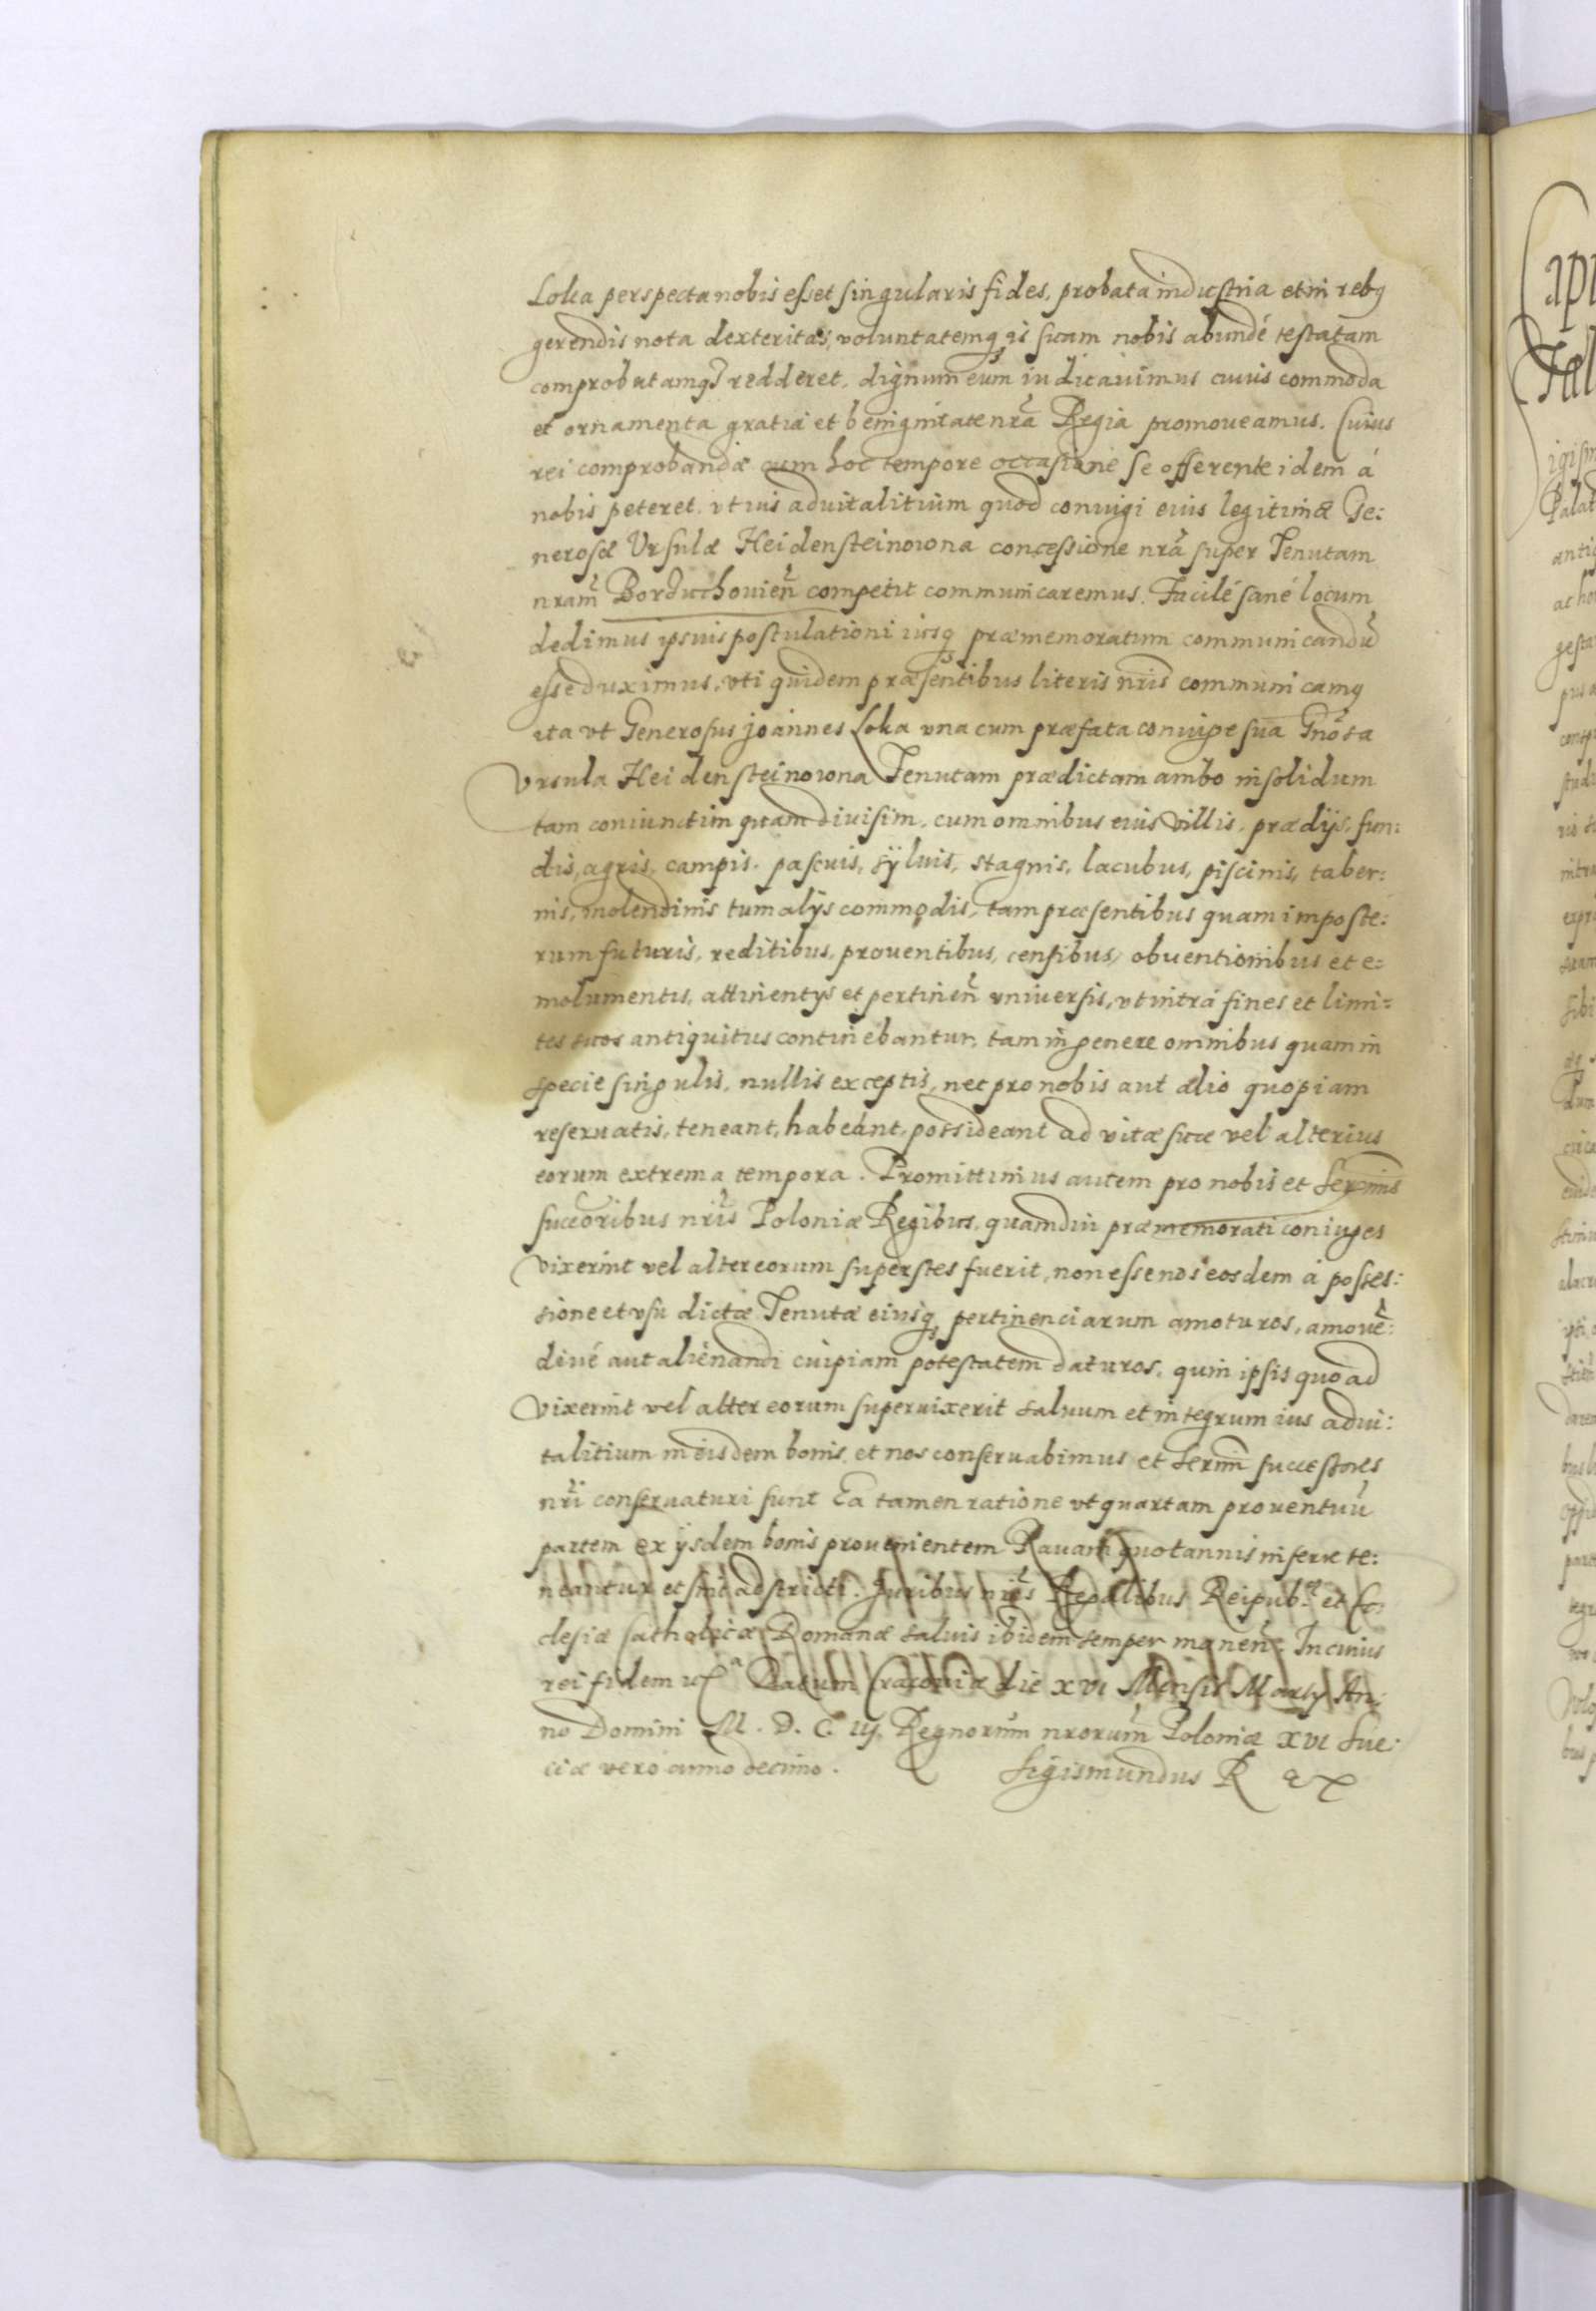 Loka perspecta nobis esset singularis fides, probata industria et in rebq
gerendis nota dexteritas, voluntatemq is suam nobis abundé testatam
comprobatamq redderet, dignum eum iudicauimus cuius commoda
et ornamenta gratia et benignitate nrã Regia promoueamus. Cuius
rei comprobandæ cum hoc tempore occasione se offerente idem á
nobis peteret, vt ius aduitalitium quod coniugi eius legitimæ Ge:
nerosæ Ursulæ Heidensteinowna concessione nrã super Tenutam
nram̃ Borduchouień competit communicaremus. Facilé sané locum
dedimus ipsius postulationi iusq præmemoratum communicandũ
esse duximus, vti quidem præsentibus literis nr̃is communicamq
ita vt Generosus Joannes Loka vna cum præfata coniuge sua Gnõsa
Vrsula Heidensteinowna Tenutam prædictam ambo insolidum
tam coniunctim quam diuisim, cum omnibus eius villis, prædijs, fun:
dis, agris, campis, pascuis, sÿluis, stagnis, lacubus, piscinis, taber:
nis, molendinis tum alijs commodis, tam præsentibus quam imposte:
rum futuris, reditibus, prouentibus, censibus, obuentionibus et e:
molumentis, attinentijs et pertineñ vniuersis, vt intrá fines et limi:
tes suos antiquitus continebantur, tam in genere omnibus quam in
specie singulis, nullis exceptis, nec pro nobis aut alio quopiam
reseruatis, teneant, habeant, possideant ad vitæ suæ vel alterius
eorum extrema tempora. Promittimus autem pro nobis et Serẽmis
succõribus nr̃is Poloniæ Regibus, quamdiu præmemorati coniuges
vixerint vel alter eorum superstes fuerit, non esse nos eosdem á posses:
sione et vsu dictæ Tenutæ eiusq pertinenciarum amoturos, amouẽ:
diué aut alienandi cuipiam potestatem daturos, quin ipsis quoad
vixerint vel alter eorum superuixerit saluum et integrum ius adui:
talitium in eisdem bonis, et nos conseruabimus et Serm̃i successores
nr̃i conseruaturi sunt Ea tamen ratione vt quartam prouentuũ
partem ex ijsdem bonis prouenientem Rauam quotannis inferre te:
neantur et sint adstricti. Juribus nr̃is Regalibus Reipub: et Ec:
clesiæ Catholicæ Romanæ saluis ibidem semper maneñ: In cuius
rei fidem Datum Cracouiæ die XVI Mensis Martij An:
no Domini M. D. C. iij. Regnorum nrorum̃ Poloniæ XVI Sue:
ciæ vero anno decimo. Sigismundus R ex